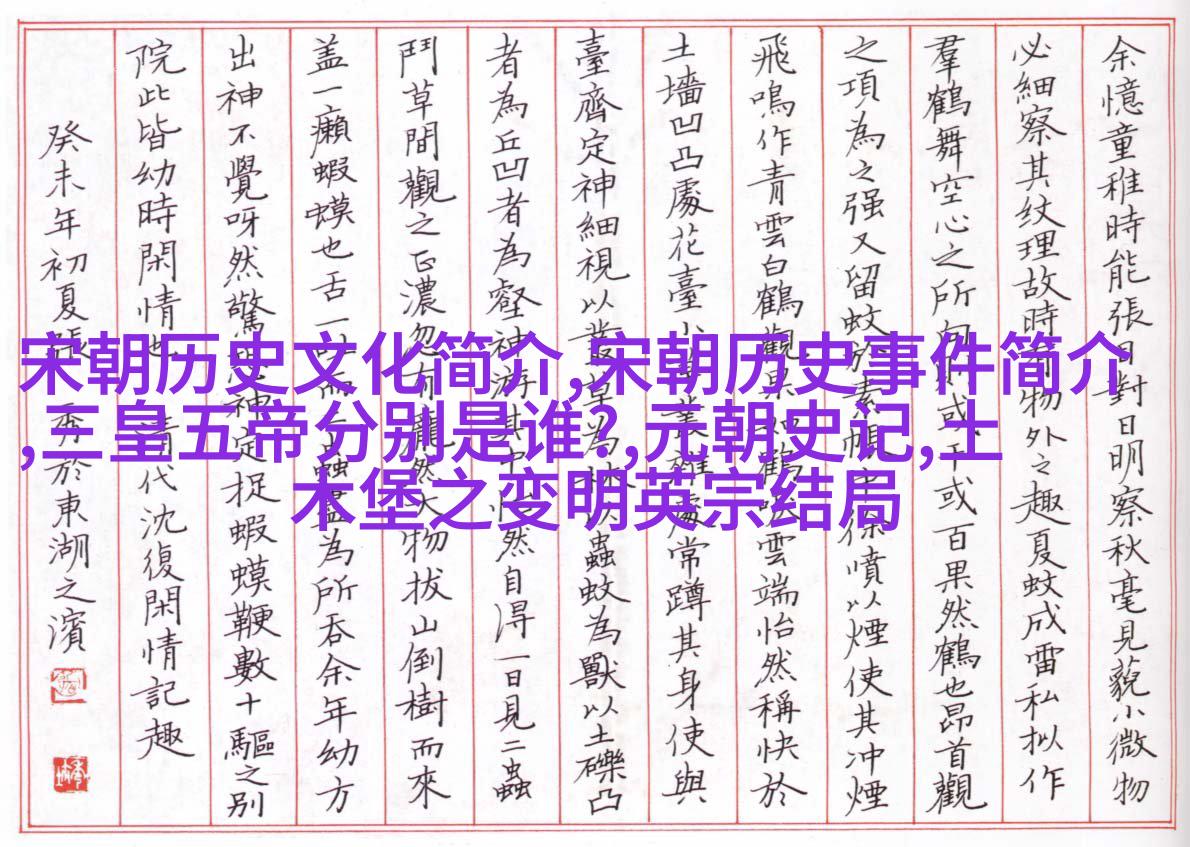 余憶童稚時能張目對日明察秋毫見藐小微物
必細察其紋理故時有物外之趣夏蚊成雷私拟作
羣鶴舞空心之所向則或千或百果然鶴也昂首觀
之項為之强又留蚊於素帳中徐噴以煙使其冲煙
飛鳴作青雲白鶴觀果如鶴唳雲端怡然稱快於
土墻凹凸處花臺小草叢雜處常蹲其身使與
臺齊定神細視以叢草為林以蟲蚊為獸以土礫凸
者為丘凹者為壑神游其中怡然自得一日見二蟲
鬥草間觀之正濃忽有龐然大物拔山倒樹而來
盖一癩蝦蟆也舌一吐而二蟲盡為所吞余年幼方
出神不覺呀然驚恐神定捉蝦蟆鞭數十驅之别
院此皆幼時閑情也 清代沈復閑情記趣
癸未年初夏張秀於東湖之濱
宋朝历史文化简介,宋朝历史事件简介
,三皇五帝分别是谁?,元朝史记,土
木堡之变明英宗结局